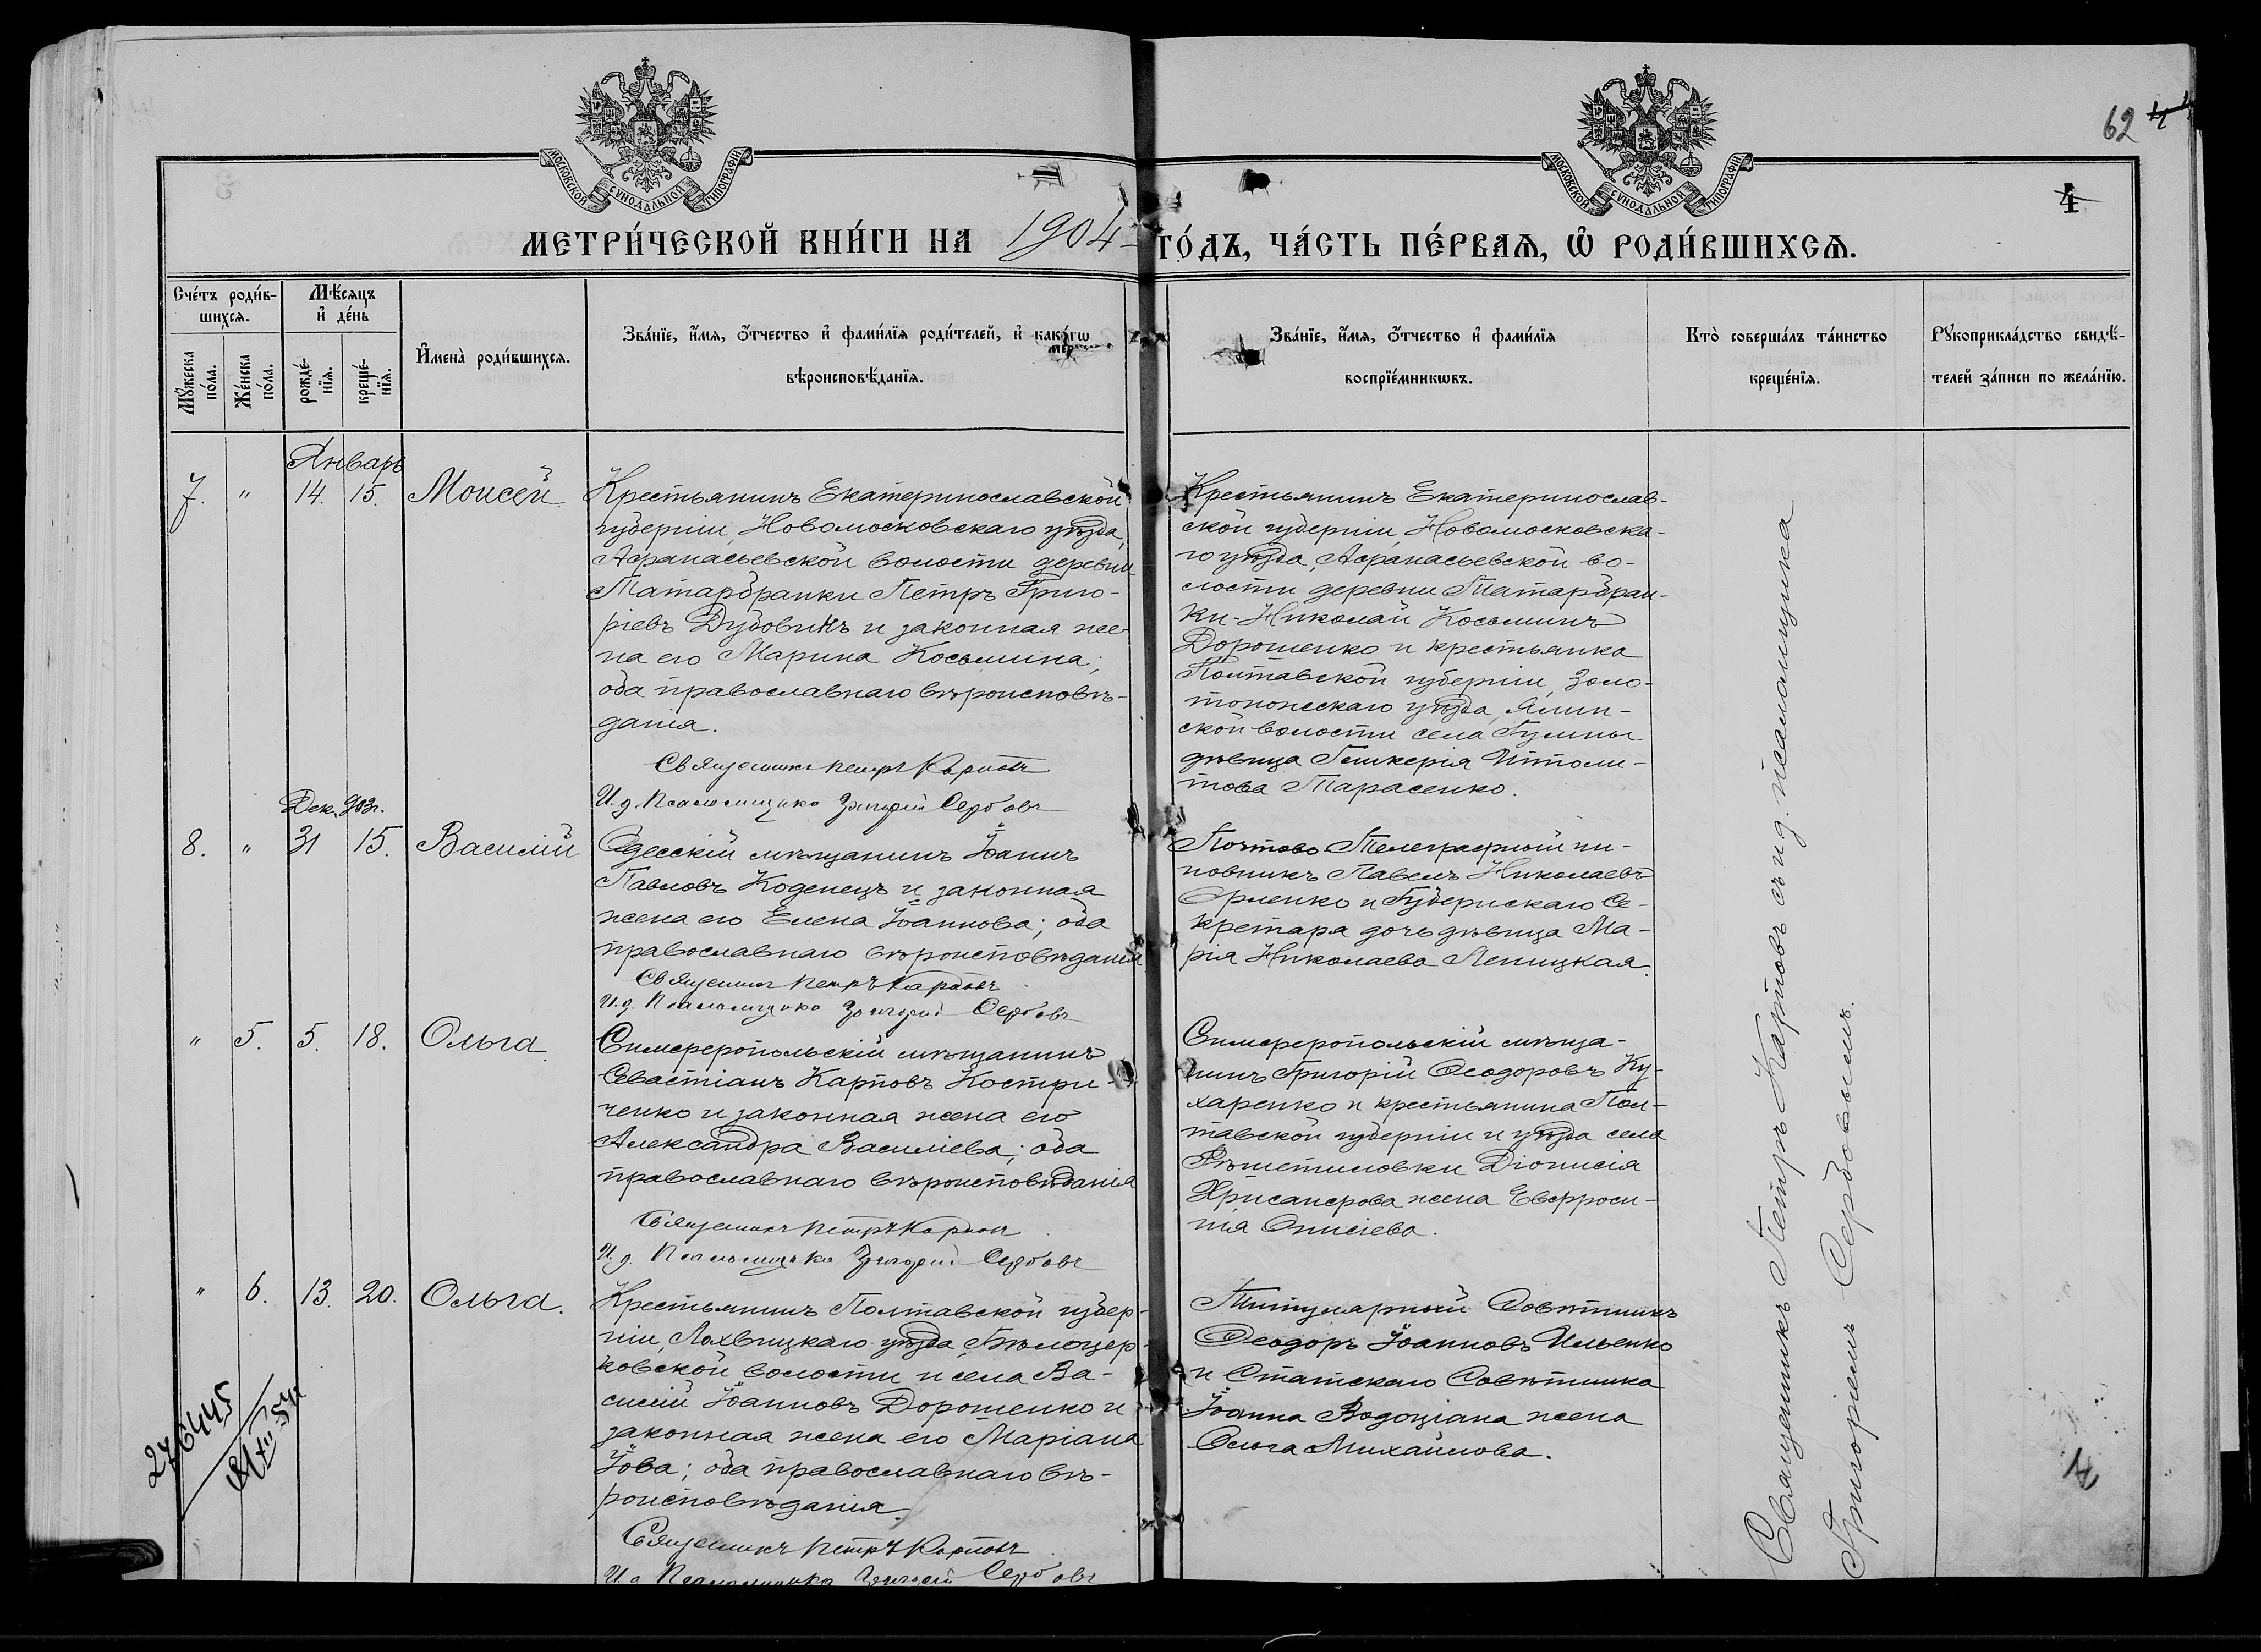 62
4
МОСКОВСКОЙ СѴНОДАЛЬНОЙ ТИПОГРАФІИ
МОСКОВСКОЙ СѴНОДАЛЬНОЙ ТИПОГРАФІИ
МЕТРИ́ЧЕСКОЙ КНИ́ГИ НА 1904 ГО́ДЪ, ЧА́СТЬ ПЕ́РВАѦ, Ѡ҆ РОДИ́ВШИХСѦ.
Сче́тъ роди́в-
шихсѧ.
Мꙋ́жеска по́ла.
Же́нска по́ла.
Мѣ́сѧцъ
и҆ де́нь
рожде́-
нїѧ.
креще́-
нїѧ.
И҆мена̀ роди́вшихсѧ.
Зва́нїе, и҆́мѧ, ѻ҆́тчество и҆ фами́лїѧ роди́телей, и҆ како́гѡ
вѣроисповѣ́данїѧ.
Зва́нїе, и҆́мѧ, ѻ҆́тчество и҆ фами́лїѧ
воспрїе́мникѡвъ.
Кто̀ соверша́лъ та́инство
креще́нїѧ.
Рꙋкоприкла́дство свидѣ́-
телей за́писи по жела́нїю.
Январь
7. " 14. 15. Моисей
Крестьянинъ Екатеринославской
губерніи, Новомосковскаго уѣзда,
Афанасьевской волости деревни
Татарбранки Петръ Григо-
ріевъ Дубовикъ и законная же-
на его Марина Косьмина;
оба православнаго вѣроисповѣ-
данія.
Священникъ Петръ Карповъ
И. д. Псаломщика Григорій Сербовъ
Крестьянинъ Екатеринослав-
ской губерніи, Новомосковска-
го уѣзда, Афанасьевской во-
лости деревни Татарбран-
ки - Николай Косьминъ
Дорошенко и крестьянка
Полтавской губерніи, Золо-
тоношскаго уѣзда,
ской волости села
дѣвица Гликерія Ипполи-
това Тарасенко.
Дек. 903г.
8. " 31 15. Василій
Одесскій мѣщанинъ Іоаннъ
Павловъ Коденецъ и законная
жена его Елена Іоаннова; оба
православнаго вѣроисповѣданія
Священникъ Петръ Карповъ
И. д. Псаломщика Григорій Сербовъ
Почтово-Телеграфный чи-
новникъ Павелъ Николаевъ
Орленко и Губернскаго Се-
кретаря дочь дѣвица Ма-
рія Николаева Леницкая.
" 5. 5. 18. Ольга
Симферопольскій мѣщанинъ
Севастіанъ Карповъ Костри-
ченко и законная жена его
Александра Василіева; оба
православнаго вѣроисповѣданія
Священникъ Петръ Карповъ
И. д. Псаломщика Григорій Сербовъ
Симферопольскій мѣща-
нинъ Григорій Ѳеодоровъ Ку-
харенко и крестьянина Пол-
тавской губерніи и уѣзда села
Рѣшетиловки Діонисія
Хрисанфова жена Евфроси-
нія Онисіева.
" 6. 13. 20. Ольга.
Крестьянинъ Полтавской губер-
ніи, Лохвицкаго уѣзда, Бѣлоцер-
ковской волости и села Ва-
силій Іоанновъ Дорошенко и
законная жена его Маріана
Іова; оба православнаго вѣ-
роисповѣданія.
Священникъ Петръ Карповъ
И. д. Псаломщика Григорій Сербовъ
Титулярный Совѣтникъ
Ѳеодоръ Іоанновъ Ильенко
и Статскаго Совѣтника
Іоанна Водоціана жена
Ольга Михайлова.
Священникъ Петръ Карповъ съ и д. псаломщика
Григоріемъ Сербовымъ.
276445